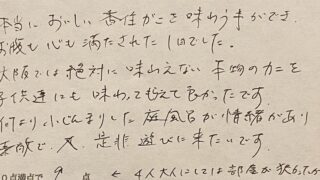 本当においしい香住がにを味わう事ができ、
お腹も心も満たされた1日でした。
大阪では絶対に味わえない本物のカニを
子供達にも味わってもらえて良かったです。
何より小じんまりした旅風呂が情緒があり
素敵で、又、是非遊びに来たいです。
0点満点で 9 点 ← 4人大人にしては部屋が狭かったが